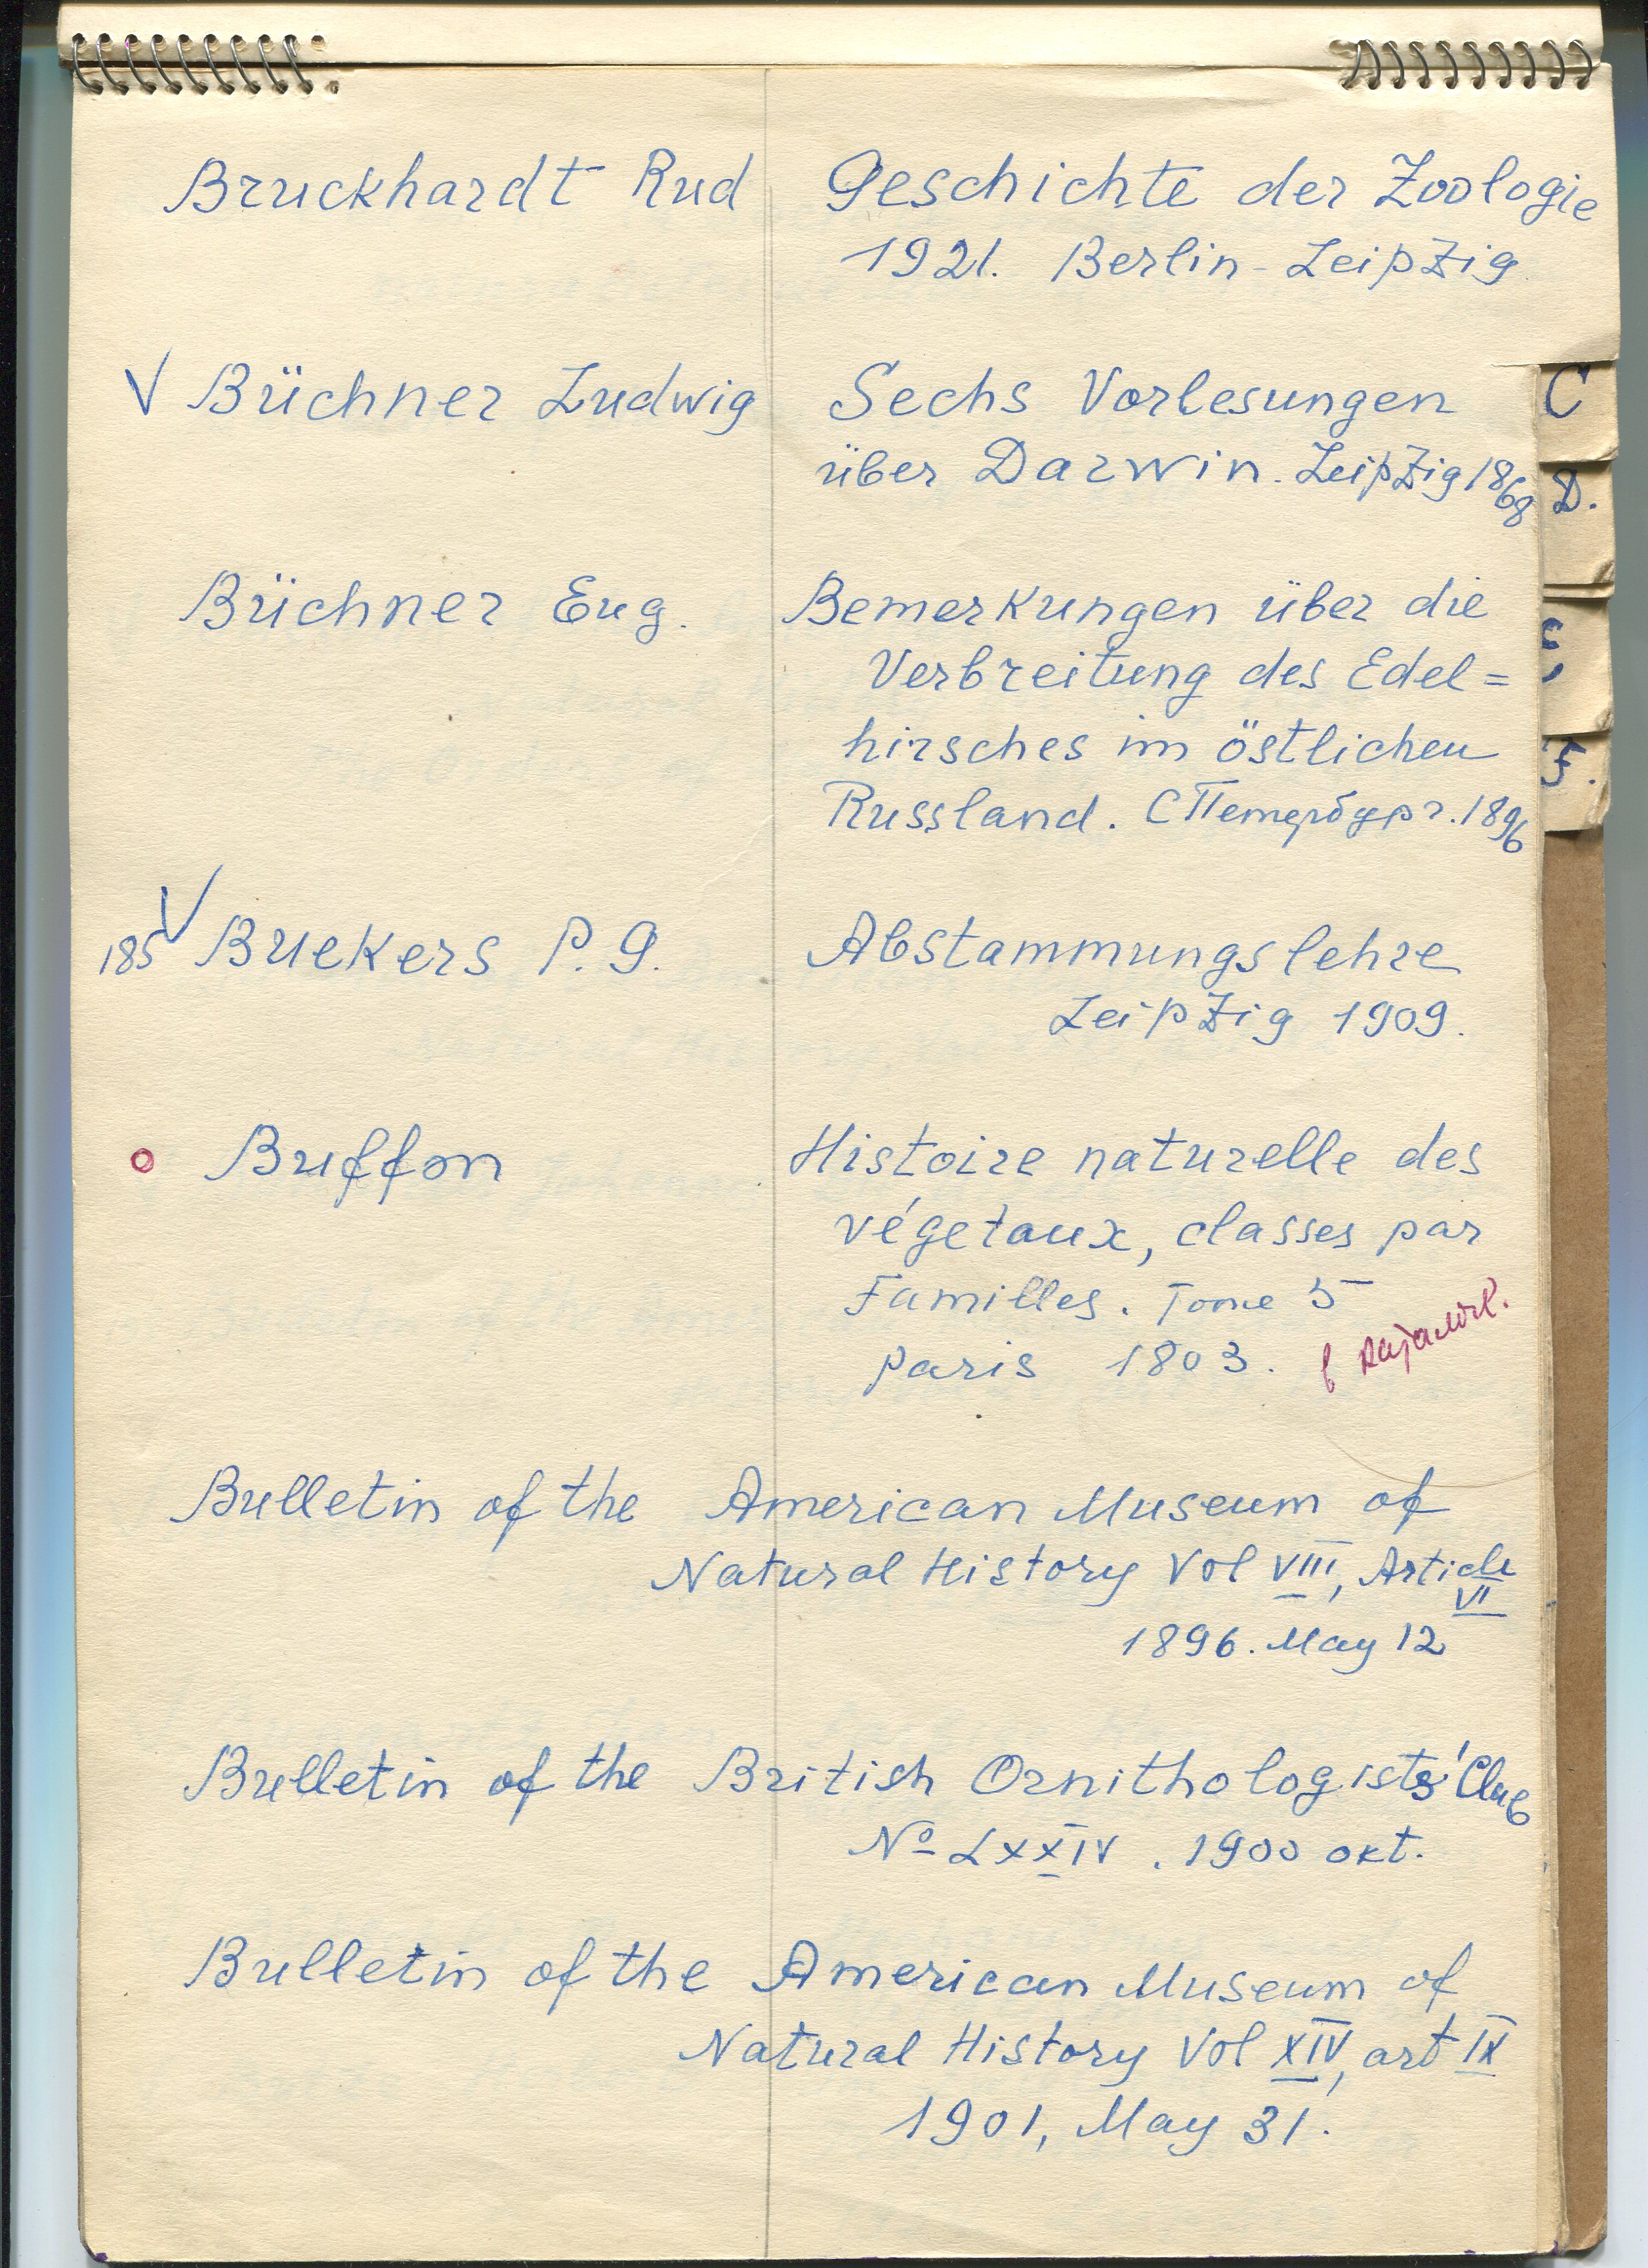 Bruckhardt Rud Geschichte der Zoologie
1921. Berlin - Leipzig
V Büchner Ludwig Sechs Vorlesungen
über Darwin. Leipzig 1868
Büchner Eug. Bemerkungen über die
Verbreitung des Edel=
hirsches im östlichen
Russland. СПетербург. 1896
V
185 Buekers P. G. Abstammungslehre
Leipzig 1909.
Buffon Histoire naturelle des
végetaux, classes par
Familles. Tome 5
Paris 1803.
Bulletin of the American Museum of
Natural History Vol VIII, Article
VI
1896. May 12
Bulletin of the British Ornithologists' Club
№ LXXIV. 1900 okt.
Bulletin of the American Museum of
Natural History Vol XIV, art IX
1901, May 31.
C
D.
F.